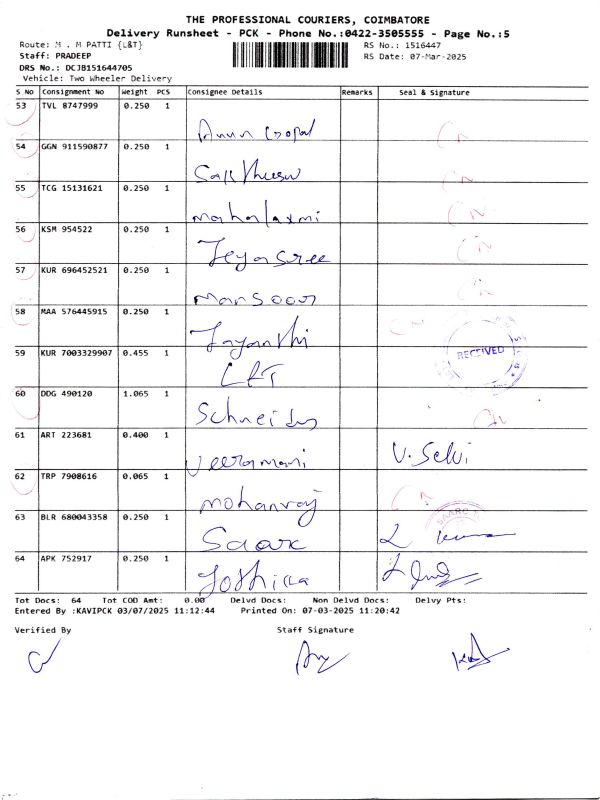 THE PROFESSIONAL COURIERS, COIMBATORE
Delivery Runsheet - PCK - Phone No.:0422-3505555 - Page No.:5
Route: M . M PATTI {L&T} RS No.: 1516447
Staff: PRADEEP RS Date: 07-Mar-2025
DRS No.: DCJB151644705
Vehicle: Two Wheeler Delivery
S No Consignment No Weight PCS Consignee Details Remarks Seal & Signature
53 TVL 8747999 0.250 1
Arun Gopal
54 GGN 911590877 0.250 1
55 TCG 15131621 0.250 1
mahalaxmi
56 KSM 954522 0.250 1
Jeyasree
57 KUR 696452521 0.250 1
Mansoor
58 MAA 576445915 0.250 1
Jayanthi
59 KUR 7003329907 0.455 1
L&T
RECEIVED
60 DDG 490120 1.065 1
Schneider
61 ART 223681 0.400 1
Veeramani V. Selvi
62 TRP 7908616 0.065 1
mohanraj
63 BLR 680043358 0.250 1
Saark
64 APK 752917 0.250 1
Joshika
Tot Docs: 64 Tot COD Amt: 0.00 Delvd Docs: Non Delvd Docs: Delvy Pts:
Entered By :KAVIPCK 03/07/2025 11:12:44 Printed On: 07-03-2025 11:20:42
Verified By Staff Signature